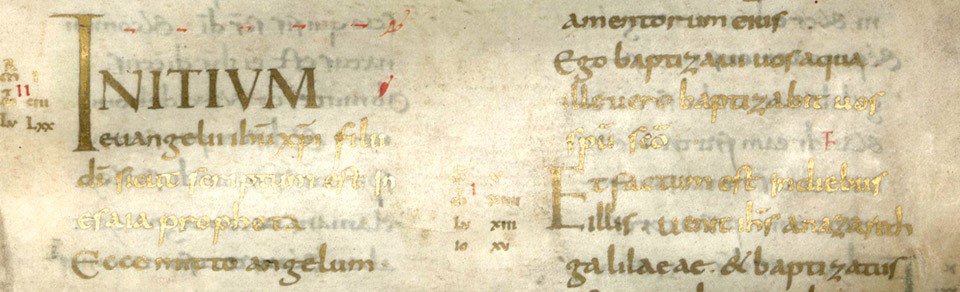 INITIVM
euangelii ihu xpi filii
di sicut scriptum est in
esaia propheta
Ecce mitto angelum
amentorum eius
Ego baptizaui uos aqua
ille uero baptizabit uos
spu sco
Et factum est in diebus
illis uenit ihs anazareth
galilaeae. & baptizatus